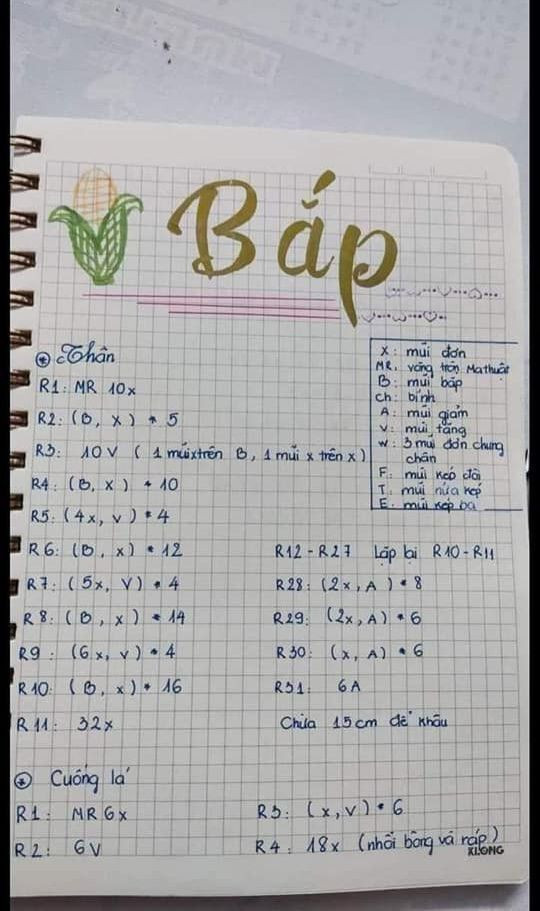 Bắp
Thân
X: mũi đơn
MR: vòng tròn Mathuật
B: mũi bắp
ch: bính
A: mũi giảm
V: mũi tăng
W: 3 mũi đơn chung chân
F: mũi kép đôi
T: mũi nửa kép
E: mũi kép ba
R1: MR 10x
R2: (B, x) * 5
R3: 10V ( 1 mũi x trên B, 1 mũi x trên x)
R4: (B, x) * 10
R5: (4x, v) * 4
R6: (B, x) * 12
R7: (5x, V) * 4
R8: (B, x) * 14
R9: (6x, v) * 4
R10: (B, x) * 16
R11: 32x
R12 - R27 Lặp lại R10 - R11
R28: (2x, A) * 8
R29: (2x, A) * 6
R30: (x, A) * 6
R31: 6A
Chừa 15cm để khâu
Cuống lá
R1: MR 6x
R2: 6V
R3: (x, V) * 6
R4: 18x (nhồi bông và ráp)
KLONG